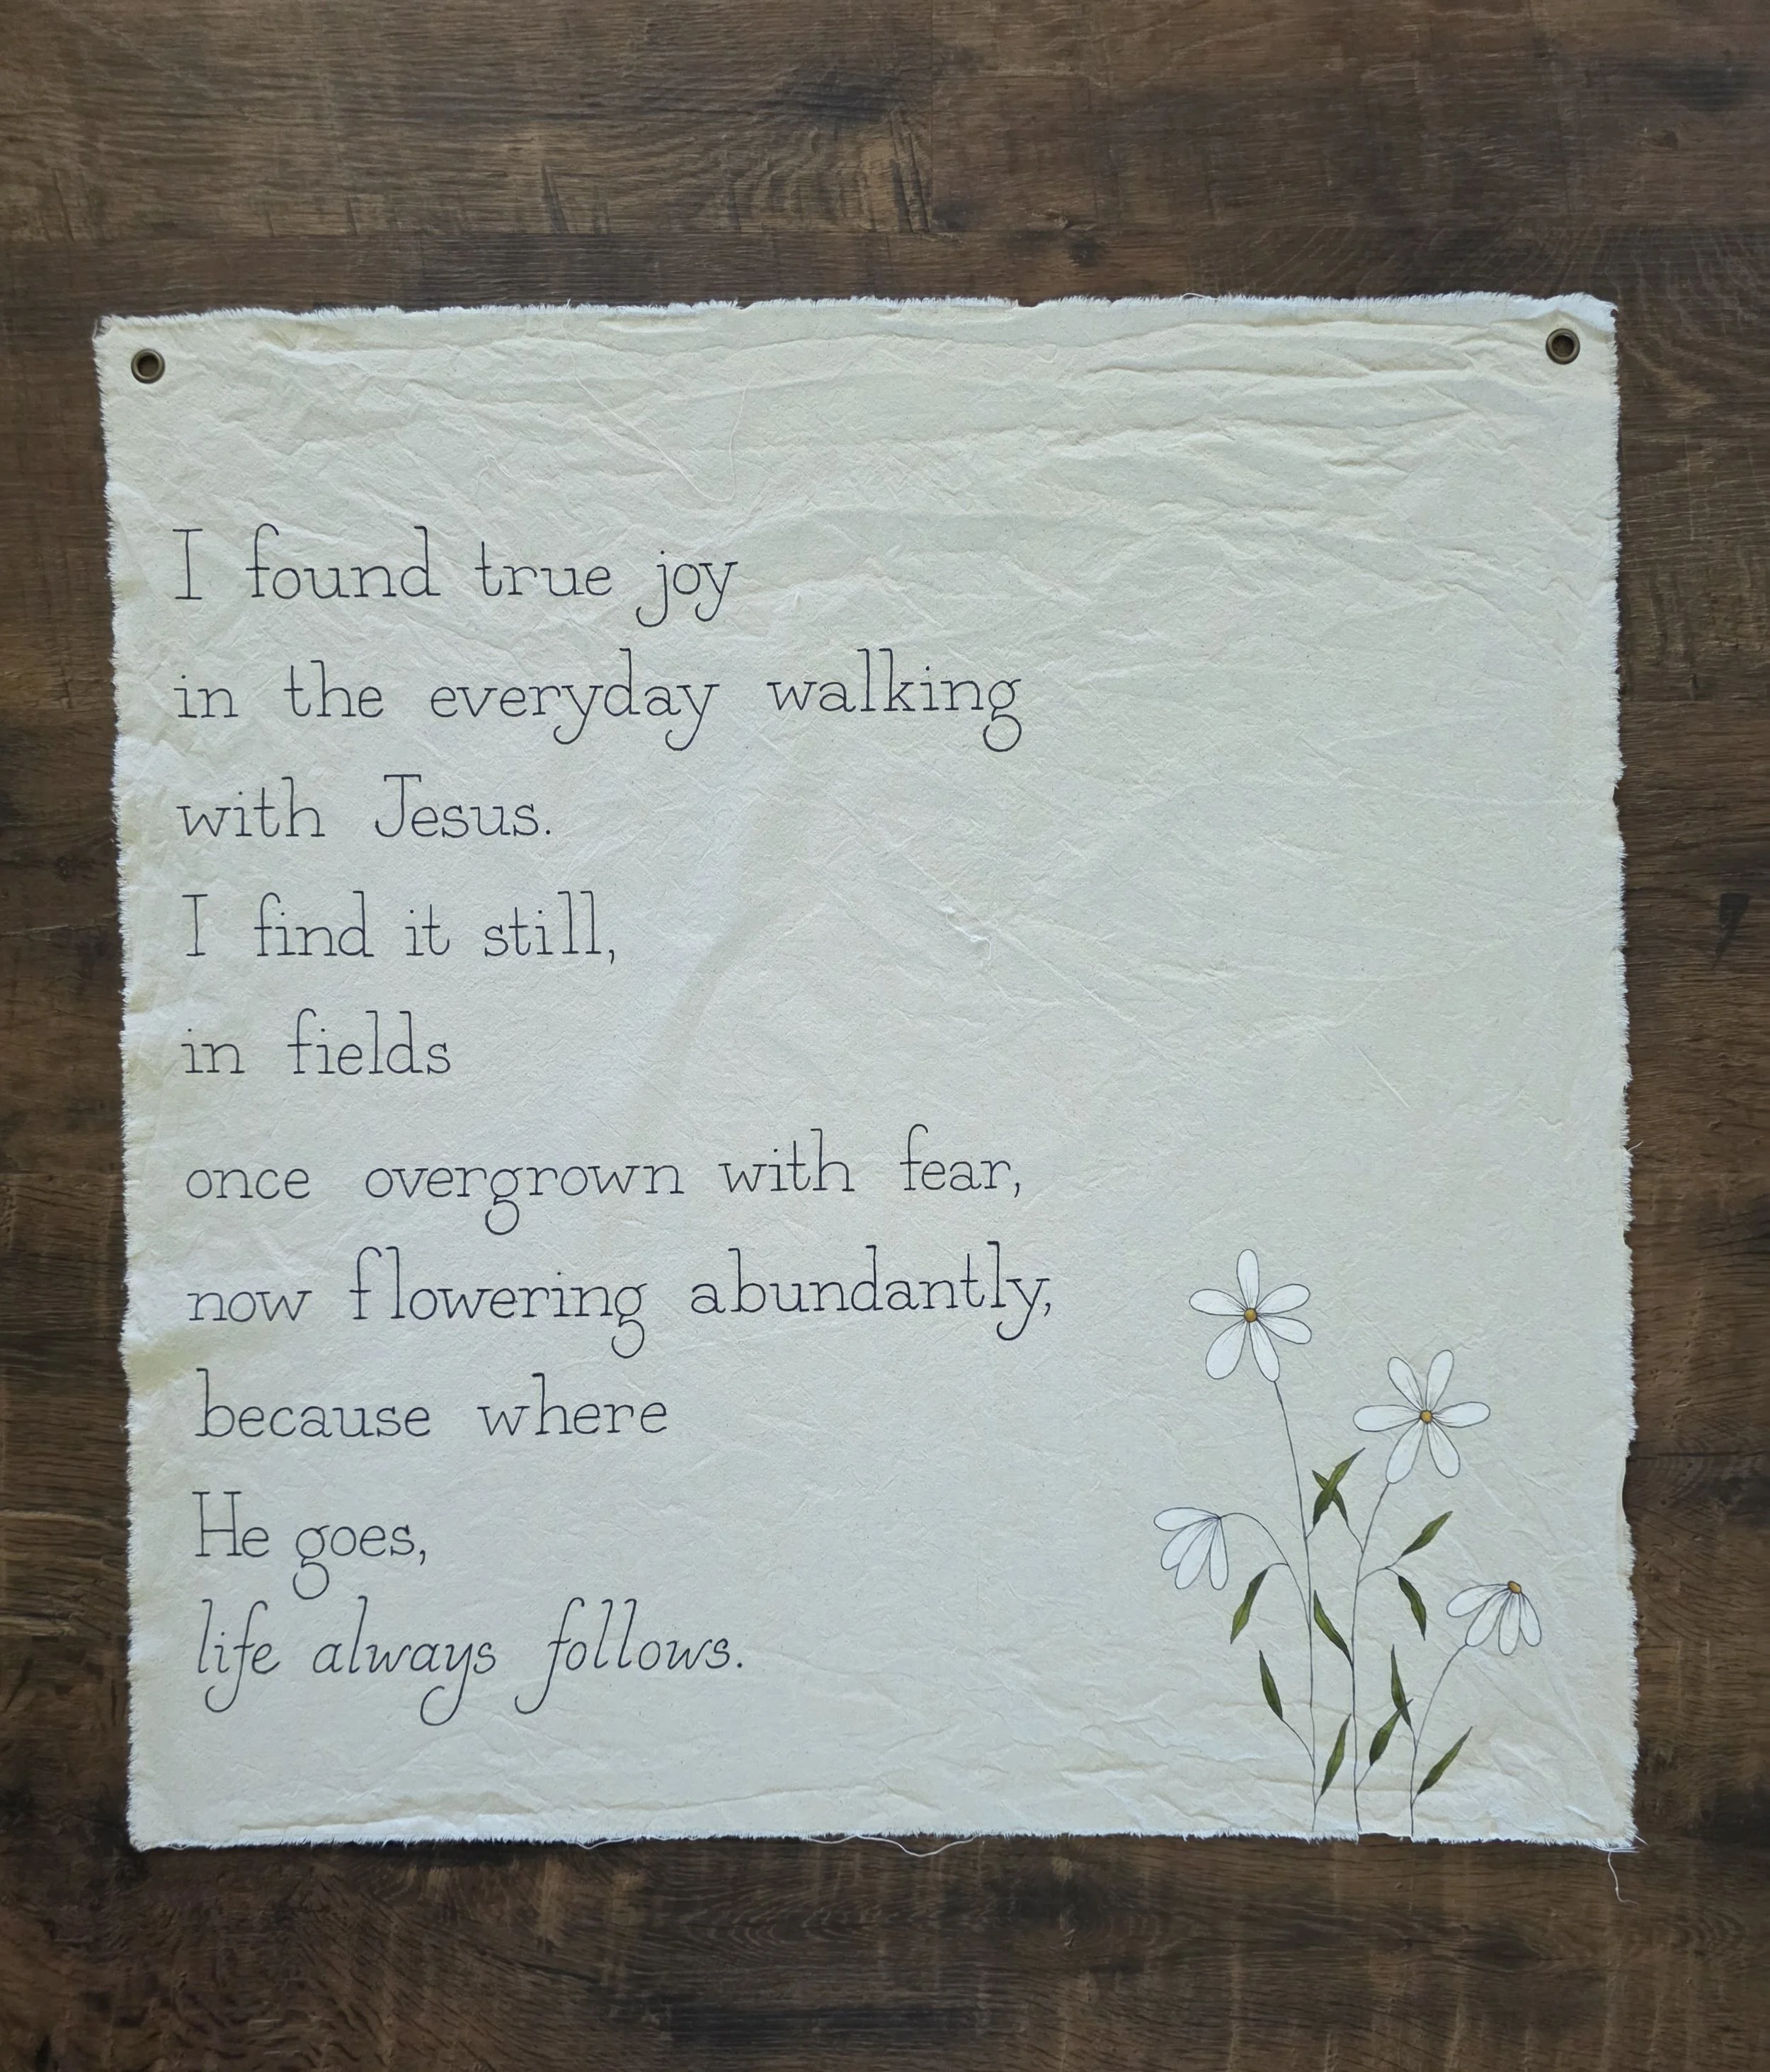 I found true joy
in the everyday walking
with Jesus.
I find it still,
in fields
once overgrown with fear,
now flowering abundantly,
because where
He goes,
life always follows.